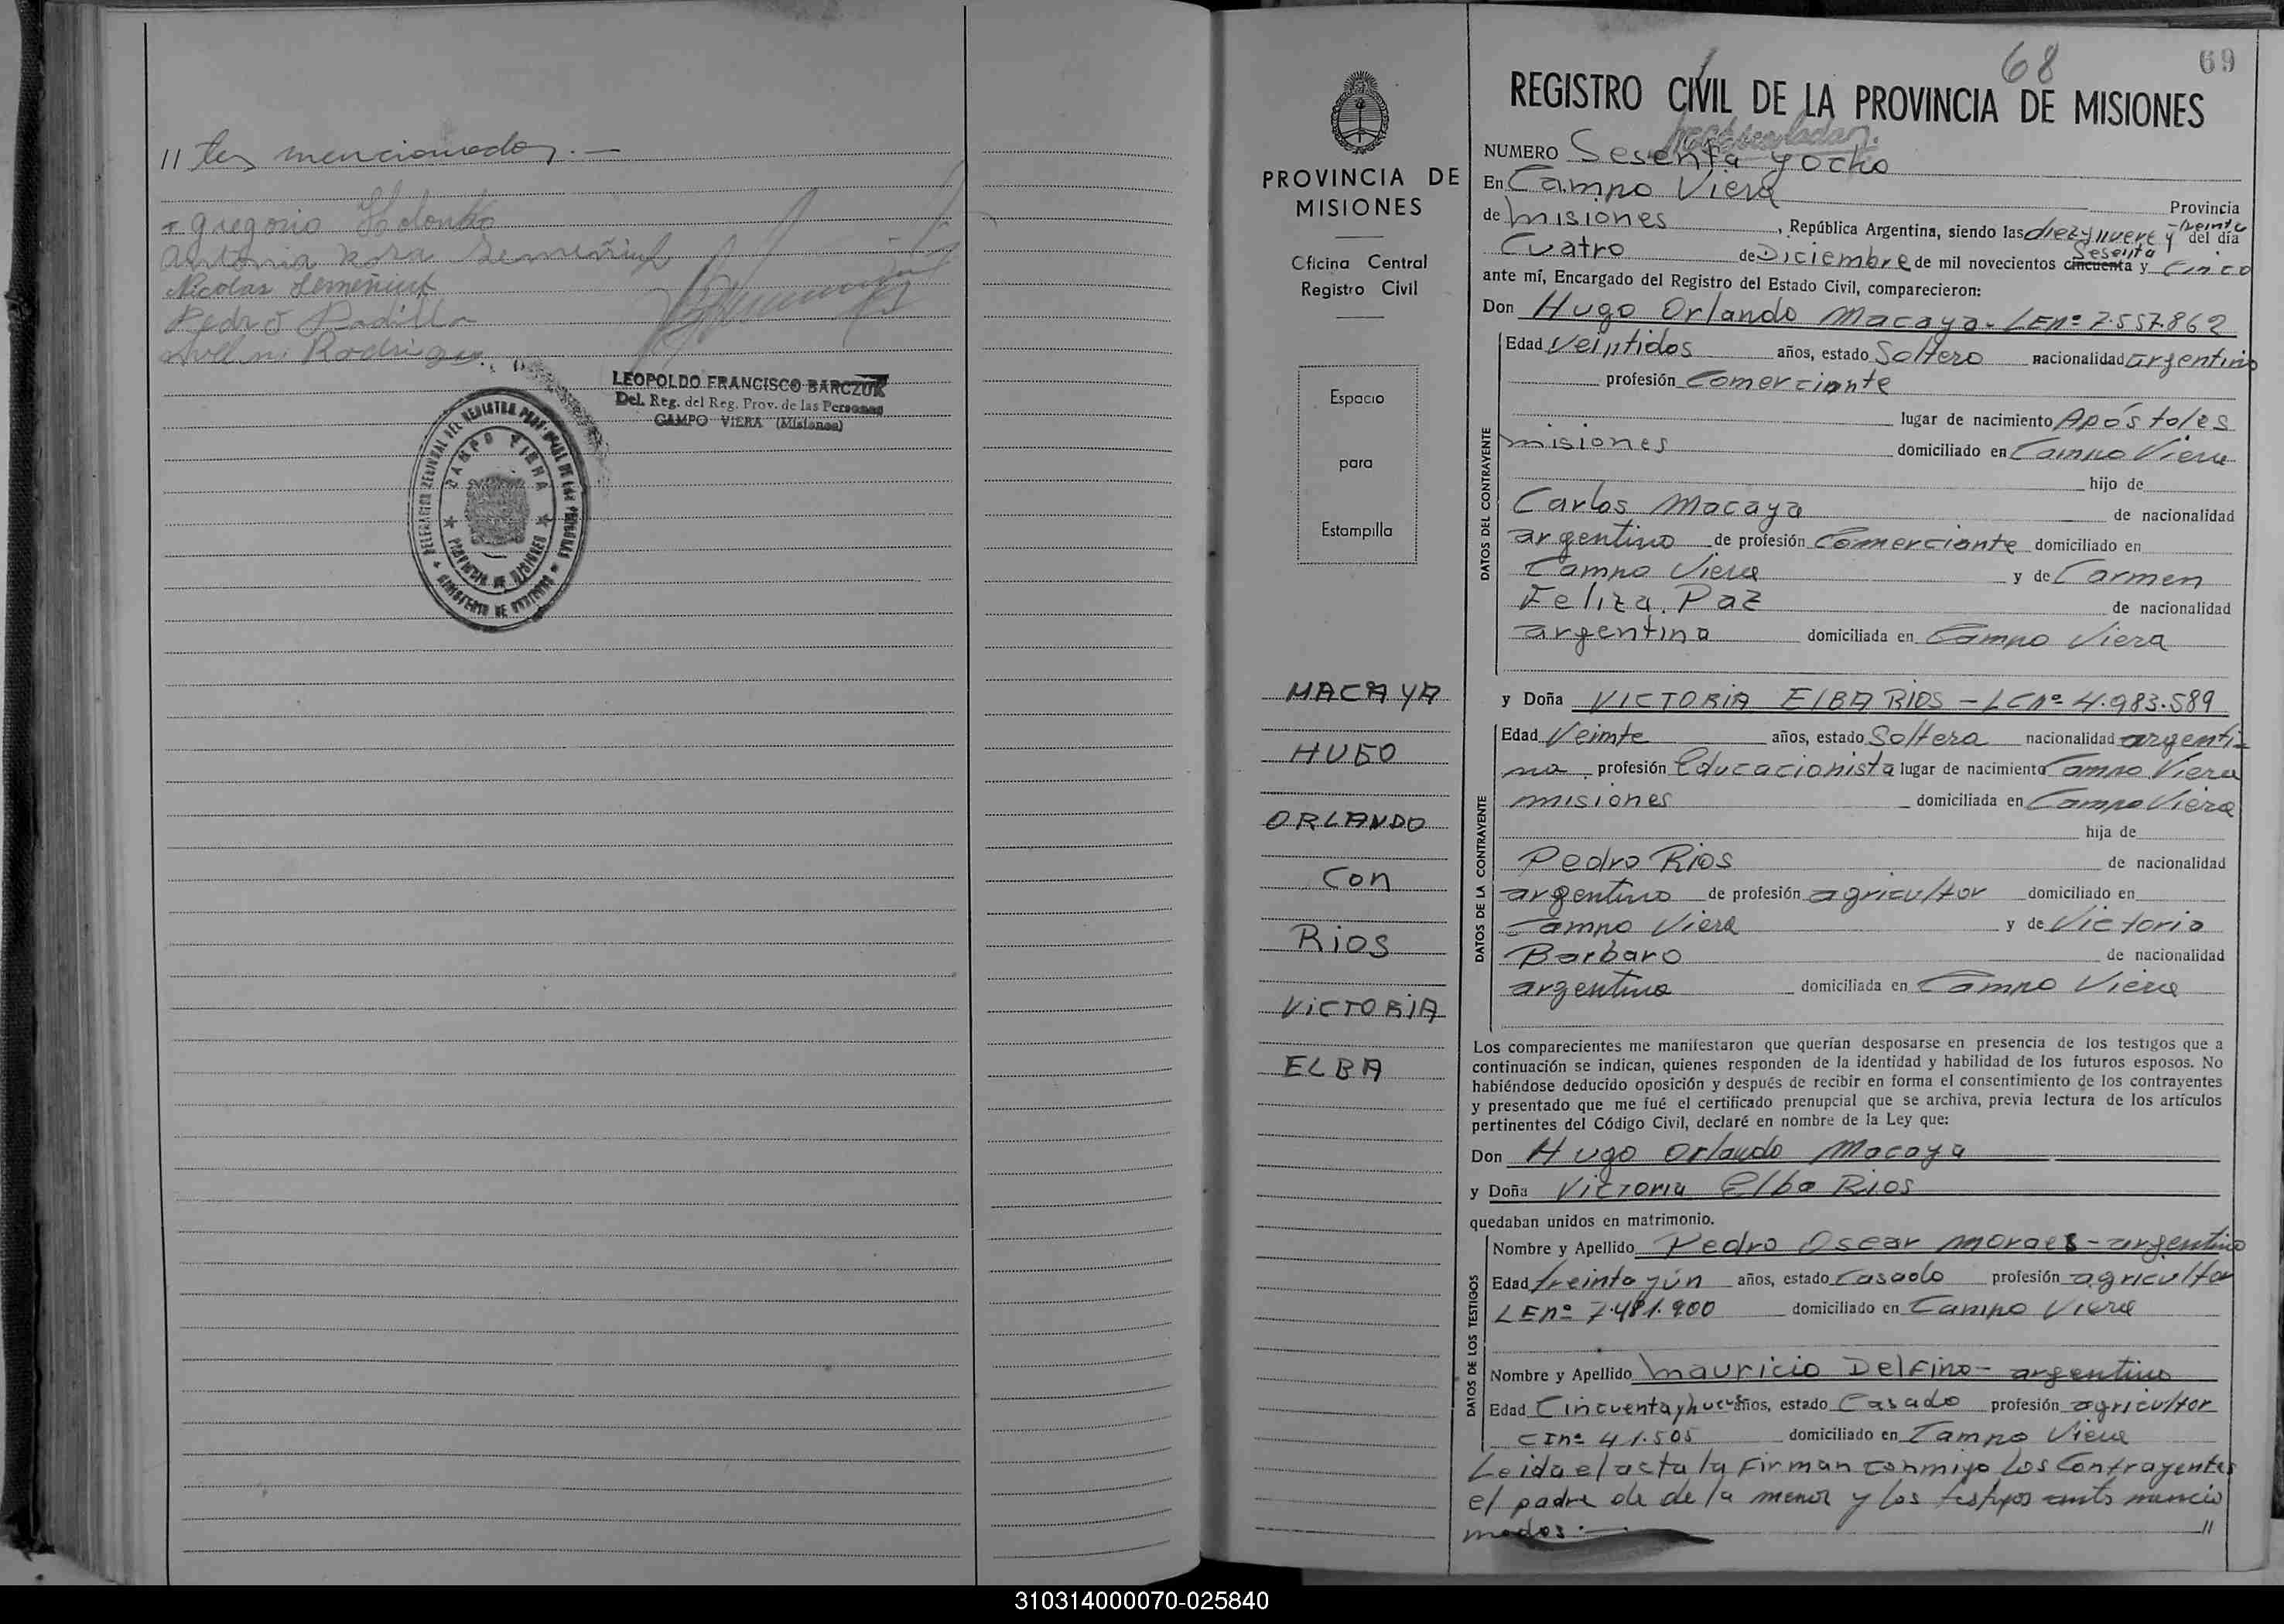 // tes mencionados.—
Gregorio Holonko
Antonia Rosa Semeñiuk
Nicolas Semeñiuk
Pedro Padilla
Rodriguez
LEOPOLDO FRANCISCO BARCZUK
Del. Reg. del Reg. Prov. de las Personas
CAMPO VIERA (Misiones)
DELEGACION SECCIONAL DEL REGISTRO PROVINCIAL DE LAS PERSONAS
CAMPO VIERA
PROVINCIA DE MISIONES
MINISTERIO DE GOBIERNO
PROVINCIA DE
MISIONES
Oficina Central
Registro Civil
Espacio
para
Estampilla
MACAYA
HUGO
ORLANDO
Con
Rios
VICTORIA
ELBA
68
69
REGISTRO CIVIL DE LA PROVINCIA DE MISIONES
NUMERO Sesenta y ocho
En Campo Viera
Provincia
de Misiones, República Argentina, siendo las diez y nueve y treinta del día
Cuatro de Diciembre de mil novecientos cincuenta sesenta y cinco
ante mí, Encargado del Registro del Estado Civil, comparecieron:
Don Hugo Orlando Macaya- LEnº 7.557.862
DATOS DEL CONTRAYENTE
Edad Veintidos años, estado Soltero nacionalidad argentino
profesión Comerciante
lugar de nacimiento Apóstoles
misiones domiciliado en Campo Viera
hijo de
Carlos Macaya de nacionalidad
argentino de profesión Comerciante domiciliado en
Campo Viera y de Carmen
Feliza Paz de nacionalidad
argentina domiciliada en Campo Viera
y Doña VICTORIA ELBA RIOS - LCnº 4.983.589
DATOS DE LA CONTRAYENTE
Edad Veinte años, estado Soltera nacionalidad argenti-
na profesión Educacionista lugar de nacimiento Campo Viera
misiones domiciliada en Campo Viera
hija de
Pedro Rios de nacionalidad
argentino de profesión agricultor domiciliado en
Campo Viera y de Victoria
Barbaro de nacionalidad
argentina domiciliada en Campo Viera
Los comparecientes me manifestaron que querían desposarse en presencia de los testigos que a
continuación se indican, quienes responden de la identidad y habilidad de los futuros esposos. No
habiéndose deducido oposición y después de recibir en forma el consentimiento de los contrayentes
y presentado que me fué el certificado prenupcial que se archiva, previa lectura de los artículos
pertinentes del Código Civil, declaré en nombre de la Ley que:
Don Hugo Orlando Macaya
y Doña Victoria Elba Rios
quedaban unidos en matrimonio.
DATOS DE LOS TESTIGOS
Nombre y Apellido Pedro Oscar Moraes - argentino
Edad treinta y ún años, estado Casado profesión agricultor
LEnº 7.481.900 domiciliado en Campo Viera
Nombre y Apellido Mauricio Delfino - argentino
Edad Cincuenta y nueve años, estado Casado profesión agricultor
CInº 41.505 domiciliado en Campo Viera
Leida el acta la Firman conmigo los Contrayentes
el padre de de la menor y los testigos ants mencio
nados.— //
310314000070-025840